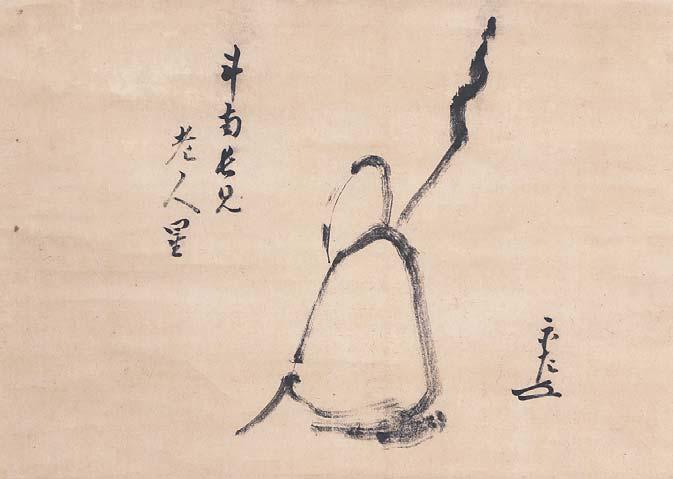 斗南長見
老人星